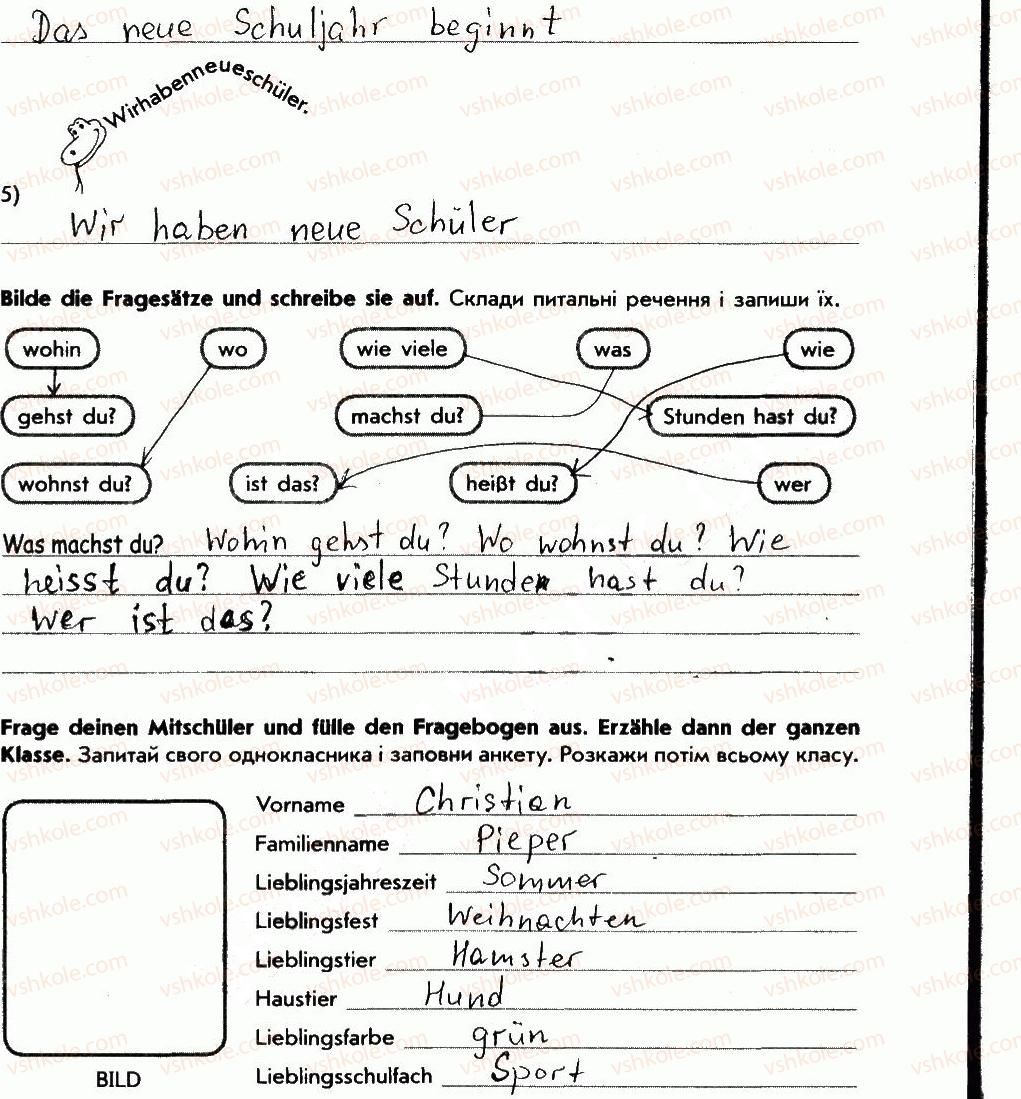 Das neue Schuljahr beginnt
Wirhabenneueschüler.
5)
Wir haben neue Schüler
Bilde die Fragesätze und schreibe sie auf. Склади питальні речення і запиши їх.
wohin wo wie viele was wie
gehst du? machst du? Stunden hast du?
wohnst du? ist das? heißt du? wer
Was machst du? Wohin gehst du? Wo wohnst du? Wie
heisst du? Wie viele Stunden hast du?
Wer ist das?
Frage deinen Mitschüler und fülle den Fragebogen aus. Erzähle dann der ganzen
Klasse. Запитай свого однокласника і заповни анкету. Розкажи потім всьому класу.
Vorname Christian
Familienname Pieper
Lieblingsjahreszeit Sommer
Lieblingsfest Weihnachten
Lieblingstier Hamster
Haustier Hund
Lieblingsfarbe grün
Lieblingsschulfach Sport
BILD
vshkole.com